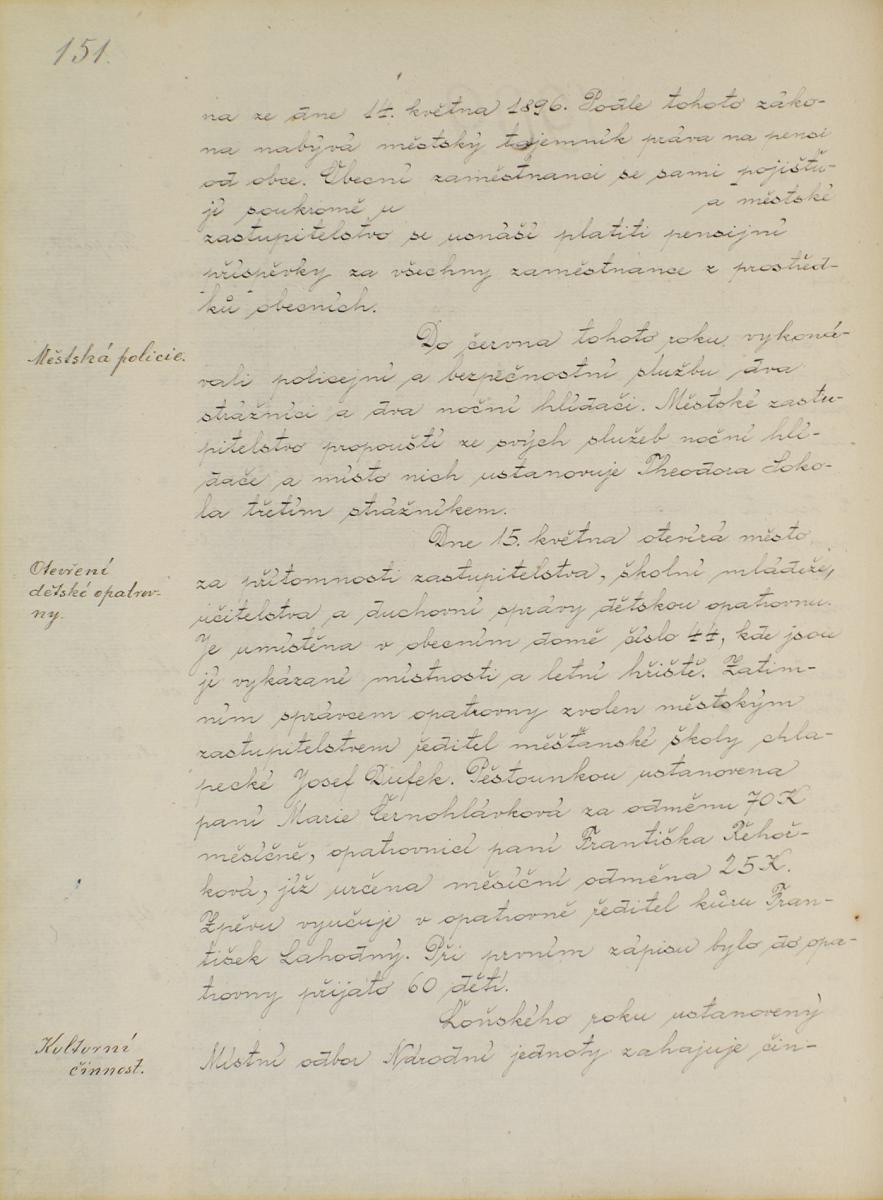 151.
na ze dne 14. května 1896. Podle tohoto záko-
na nabývá městský tajemník práva na pensi
od obce. Obecní zaměstnanci se sami pojištu-
jí soukromě u a městské
zastupitelstvo se usnáší platiti pensijní
příspěvky za všechny zaměstnance z prostřed-
ků obecních.
Městská policie.
Do června tohoto roku vykoná-
vali policejní a bezpečnostní službu dva
strážníci a dva noční hlídači. Městské zastu-
pitelstvo propouští ze svých služeb noční hlí-
dače a místo nich ustanovuje Theodora Soko-
la třetím strážníkem.
Otevření
dětské opatrov-
ny.
Dne 15. května otevírá město
za přítomnosti zastupitelstva, školní mládeže,
učitelstva a duchovní správy dětskou opatrovnu.
Je umístěna v obecním domě číslo 44, kde jsou
jí vykázané místnosti a letní hřiště. Zatím-
ním správcem opatrovny zvolen městským
zastupitelstvem ředitel měšťanské školy chla-
pecké Josef Dufek. Pěstounkou ustanovena
paní Marie Černohlávková za odměnu 70 K
měsíčně, opatrovnicí paní Františka Řehoř-
ková, jíž určena měsíční odměna 25 K.
Zpěvu vyučuje v opatrovně ředitel kůru Fran-
tišek Lahodný. Při prvním zápisu bylo do opa-
trovny přijato 60 dětí.
Kulturní
činnost.
Loňského roku ustanovený
Místní odbor Národní jednoty zahajuje čin-